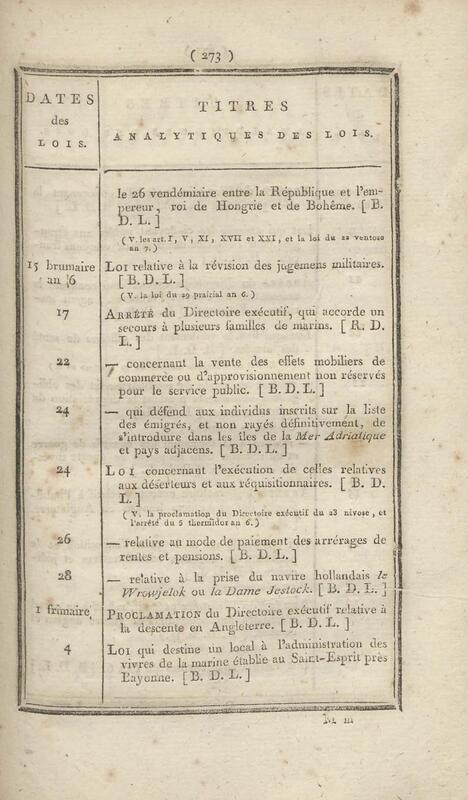 ( 273 )
DATES
des
LOIS.
TITRES
ANALYTIQUES DES LOIS.
le 26 vendémiaire entre la République et l'em-
pereur, roi de Hongrie et de Bohême. [ B.
D. L. ]
( V. les art. I, V, XI, XVII et XXI, et la loi du 22 ventose
an 7. )
15 brumaire
an 6
LOI relative à la révision des jugemens militaires.
[ B. D. L. ]
( V. la loi du 29 prairial an 6. )
17
ARRÊTÉ du Directoire exécutif, qui accorde un
secours à plusieurs familles de marins. [ R. D.
L. ]
22
— concernant la vente des effets mobiliers de
commerce ou d'approvisionnement non réservés
pour le service public. [ B. D. L. ]
24
— qui défend aux individus inscrits sur la liste
des émigrés, et non rayés définitivement, de
s'introduire dans les îles de la Mer Adriatique
et pays adjacens. [ B. D. L. ]
24
LOI concernant l'exécution de celles relatives
aux déserteurs et aux réquisitionnaires. [ B. D.
L. ]
( V. la proclamation du Directoire exécutif du 23 nivose, et
l'arrêté du 5 thermidor an 6. )
26
— relative au mode de paiement des arrérages de
rentes et pensions. [ B. D. L. ]
28
— relative à la prise du navire hollandais le
Wrowjelok ou la Dame Jestock. [ B. D. L. ]
1 frimaire
PROCLAMATION du Directoire exécutif relative à
la descente en Angleterre. [ B. D. L. ]
4
LOI qui destine un local à l'administration des
vivres de la marine établie au Saint-Esprit près
Bayonne. [ B. D. L. ]
M m